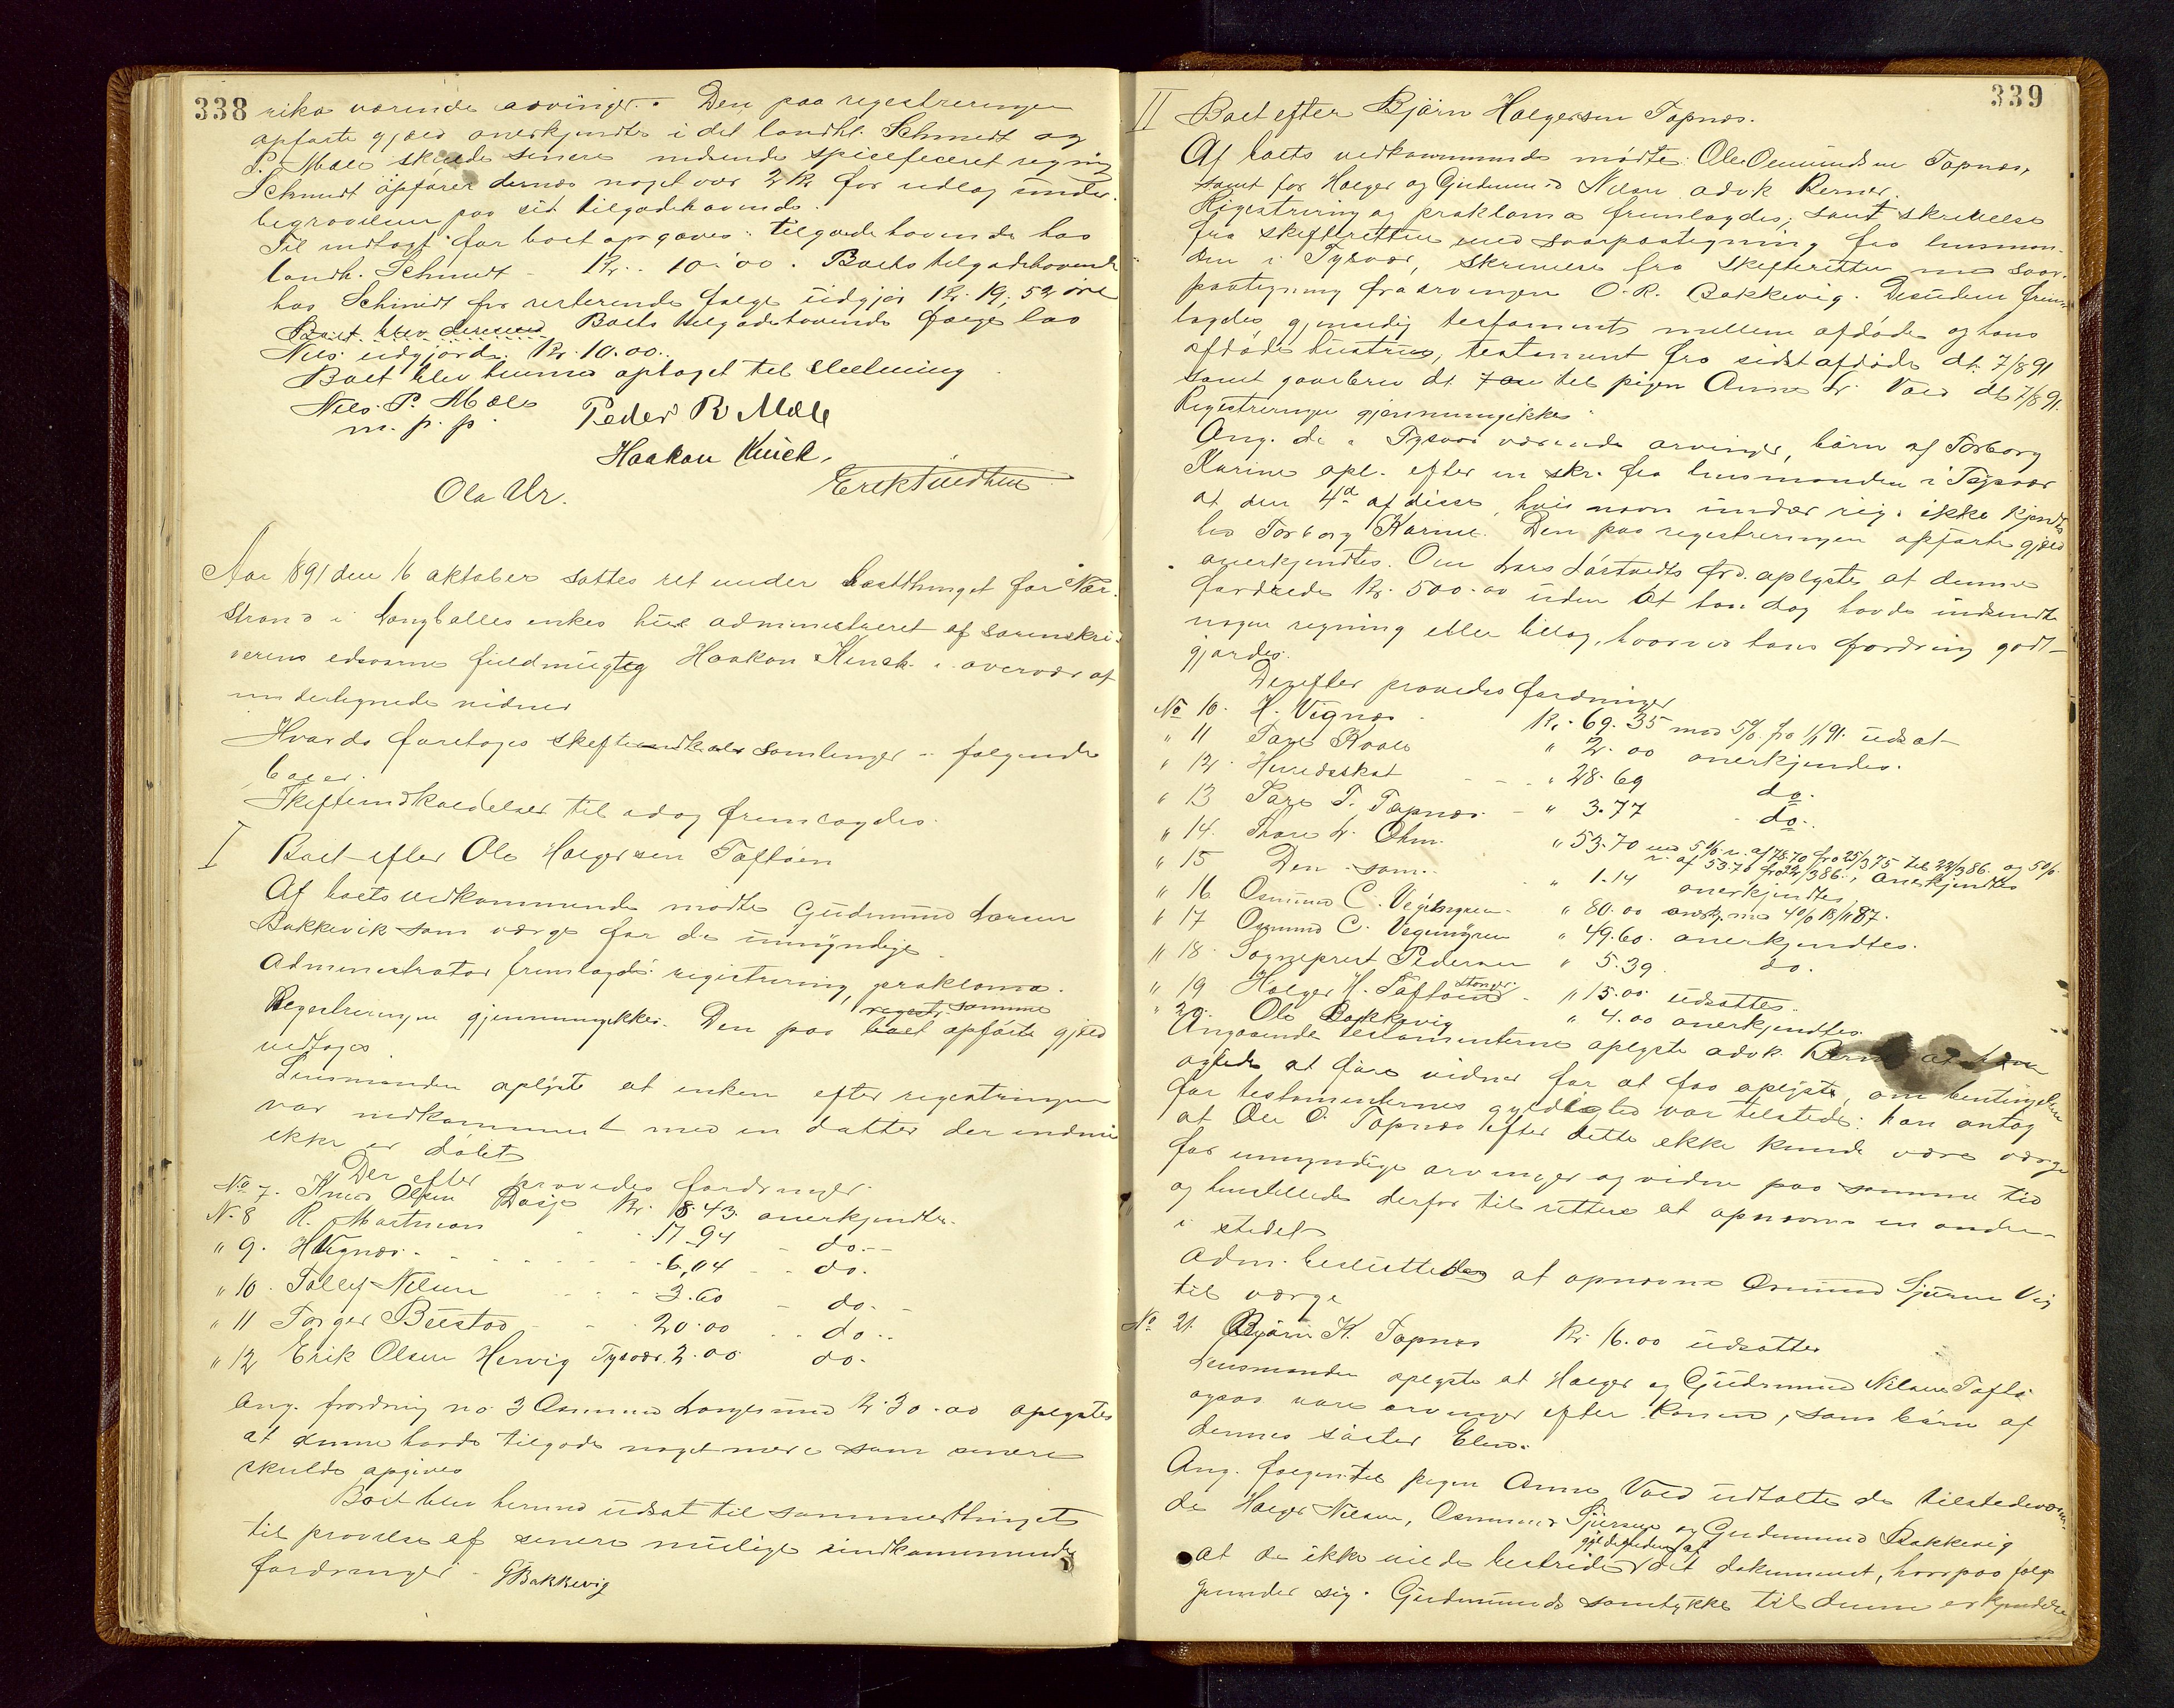 338
rika værende arvinger. Den paa registreringen
opførte gjæld anerkjendtes i det landhl. Schmidt og
P. Mæle skulde senere indsende spicificeret regning
Schmidt opfører dernæst noget over 2 Kr. for udlæg under
begravelsen paa sit tilgodehavende.
Til indtægt for boet opgaves: tilgodehavende hos
landh. Schmidt - Kr. 10.00. Boets tilgodehavende
hos Schmidt for resterende følge udgjør Kr. 19.52 øre
Boet blev dernæst Boets tilgodehavende følge hos
Nils udgjorde Kr. 10.00.
Boet blev herned optaget til slutning
Nils P. Mæle Peder R Mæle
m. p. p.
Haakon Kinck,
Ola Ur. Erik Tuedtnes
Aar 1891 den 16 oktober sattes ret under høstthinget for Nær-
strand i Langballes enkes hus administreret af sorenskri-
verens edsvorne fuldmægtig Haakon Kinck i overvær af
undertegnede vidner
Hvorda foretoges skifteindkald samlinger i følgende
boer.
Skifteindkaldelser til idag fremlagdes.
I Boet efter Ole Holgersen Toftøen
Af boets vedkommende mødte Gudmund Larsen
Bakkevik som værge for de umyndige.
Administrator fremlagde: registrering, proklama.
Registreringen gjennemgikkes. Den paa boet registr. samme opførte gjæld
vedtoges
Lensmanden oplyste at enken efter registreringen
var nedkommet med en datter der endnu
ikke er døbt
Der efter prøvedes fordringer.
No 7. Knud Olsen Baasje Kr. 18.43. anerkjendtes.
N. 8 R. Martman 17.94 - do.-
" 9. H Vignæs - 6.04 - do.
" 10. Tollef Nilsen 3.60 - do.-
" 11 Torger Bustad 20.00 .. do..
" 12 Erik Olsen Hervig Tysvær. 2.00 do.
Ang. fordring no 3 Osmund Longesund Kr. 30.00 oplystes
at denne havde tilgode noget mere som senere
skulde opgives
Boet blev herned udsat til sommerthinget
til prøvelse af senere mulige indkommende
fordringer. G Bakkevig
339
II Boet efter Bjørn Holgersen Topnæs.
Af boets vedkommende mødte: Ole Osmundsen Topnæs,
samt for Holger og Gudmund Nilsen advk Berner.
Registrering og proklama fremlagdes, samt skrivelse
fra skifteretten med svarpaategning fra lensman-
den i Tysvær, skrivelse fra skifteretten med svar-
paategning fra arvingen O. R. Bakkevig. Desuden frem-
lagdes gjensidig testamente mellem afdøde og hans
afdøde hustru, testament fra sidst afdøde dt. 7/8 91
samt gavebrev dt. til pigen Anne L. Vold dt 7/8 91.
Registreringen gjennemgikkes
Ang. de i Tysvær værende arvinger, børn af Torborg
Karine opl. efter en skr. fra lensmanden i Tysvær
at den 4de af disse, hvis navn under rig. ikke kjendtes
hed Torborg Karine. Den paa registreringen opførte gjæld
anerkjendtes. Om Lars Løstvedts frd. oplystes at denne
fordrede Kr. 500.00 uden at han dog havde indsendt
nogen regning eller bilag, hvorved hans fordring godt-
gjordes.
Derefter prøvedes fordringer
No 10. H. Vignæs Kr. 69.35 med 5% fra 1/1 91. udsat
" 11 Tore Kvale " 2.00 anerkjendes.
" 12. Heredsskat - - " 28.69 do.
" 13 Tore T. Topnæs. - " 3.77 do.
" 14. Thore L. Ohm. " 53.70 med 5% r. af 78.70 fra 25/3 75 til 22/3 86. og 5%
r. af 53.70 fra 22/3 86., anerkjendtes
" 15 Den sam. " 1.14 anerkjendtes
" 16 Osmund C. " 80.00 anerkj. med 4% 18/11 87.
" 17 Osmund C. " 49.60. anerkjendtes.
" 18. Sogneprest Pedersen " 5.39. do.
" 19 Holger H. Toftøen Stonger. " 15.00 udsattes.
" 20. Ole Bakkevig " 4.00 anerkjendtes.
Angaaende testamenterne oplyste advk. Berner at han
agtede at føre vidner for at faa oplyst, om betingelsen
for testamenternes gyldighed var tilstede: han antog
at Ole O. Topnæs efter dette ikke kunde være værge
for umyndige arvinger og vidne paa samme tid
og henstillede derfor til retten at opnævne en anden
i stedet
Adm. besluttede at opnævne Osmund Sjursen Vig
til værge
No 21. Bjørn K. Topnæs Kr. 16.00 udsattes
Lensmanden oplyste at Holger og Gudmund Nilsen Toftø
ogsaa vare arvinger efter konen, som børn af
dennes søster Elen.
Ang. følgen til pigen Anne Vold udtalte de tilstedeværen-
de Holger Nilsen, Osmund Sjursen og Gudmund Bakkevig
at de ikke vilde bestride gyldigheden af det dokument, hvorpaa følgen
grunder sig. Gudmunds samtykke til denne erkjendelse